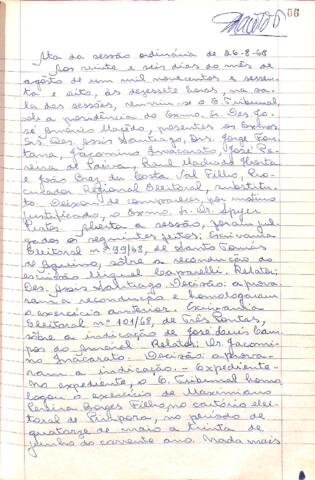 56
Ata da sessão ordinária de 26-8-68
Aos vinte e seis dias do mês de
agôsto de um mil novecentos e sessen-
ta e oito, às dezessete horas, na sa-
la das sessões, reuniu-se o E. Tribunal,
sob a presidência do Exmo. Sr. Des. Jo-
sé Américo Macêdo, presentes os Exmos.
Srs. Des. Assis Santiago, Drs. Jorge Fon-
tana, Jacomino Inacarato, José Pe-
reira de Paiva, Raul Machado Horta
e João Braz da Costa Val Filho, Pro-
curador Regional Eleitoral, substitu-
to. Deixou de comparecer, por motivo
justificado, o Exmo. Sr. Dr.
Aberta a sessão, foram jul-
gados os seguintes feitos: Escrivania
Eleitoral nº 99/68, de Santo Tomás
de Aquino, sôbre a recondução do
escrivão Miguel Caparelli. Relator:
Des. Assis Santiago. Decisão: aprova-
ram a recondução e homologaram
o exercício anterior. Escrivania
Eleitoral nº 101/68, de Três Pontas,
sôbre a indicação de José Luis Cam-
pos do Amaral. Relator: Dr. Jacomi-
no Inacarato. Decisão: aprova-
ram a indicação. - Expediente -
No expediente, o E. Tribunal homo-
logou o exercício de Maximiano
Pereira Borges Filho, no cartório elei-
toral de Pirapora, no período de
quatorze de maio a trinta de
junho do corrente ano. Nada mais